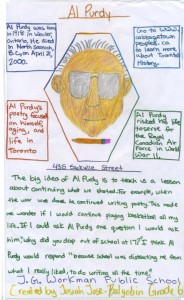 Al Purdy
Al Purdy was born
in 1918 in Wooler,
Ontario. He died
in North Saanich,
B.C, on April 21,
2000.
Go to www.
cabbagetown
people.ca
to learn more
about Toronto
History.
Al Purdy's
poetry focused
on himself,
aging, and
life in
Toronto
Al Purdy
risked his life
to serve for the
Royal Canadian
Air Force
in World
War II.
435 Sackville Street
The big idea of Al Purdy is to teach us a lesson
about continuing what we started. For example, when
the war was done he continued writing poetry. This made
me wonder if I would continue playing basketball all my
life. If I could ask Al Purdy one question I would ask
him, "why did you drop out of school at 17?" I think Al
Purdy would respond "because school was distracting me from
what I really liked, to do writing all the time."
J.G. Workman Public School
Created by Josiah Jose-Balgedin Grade 6